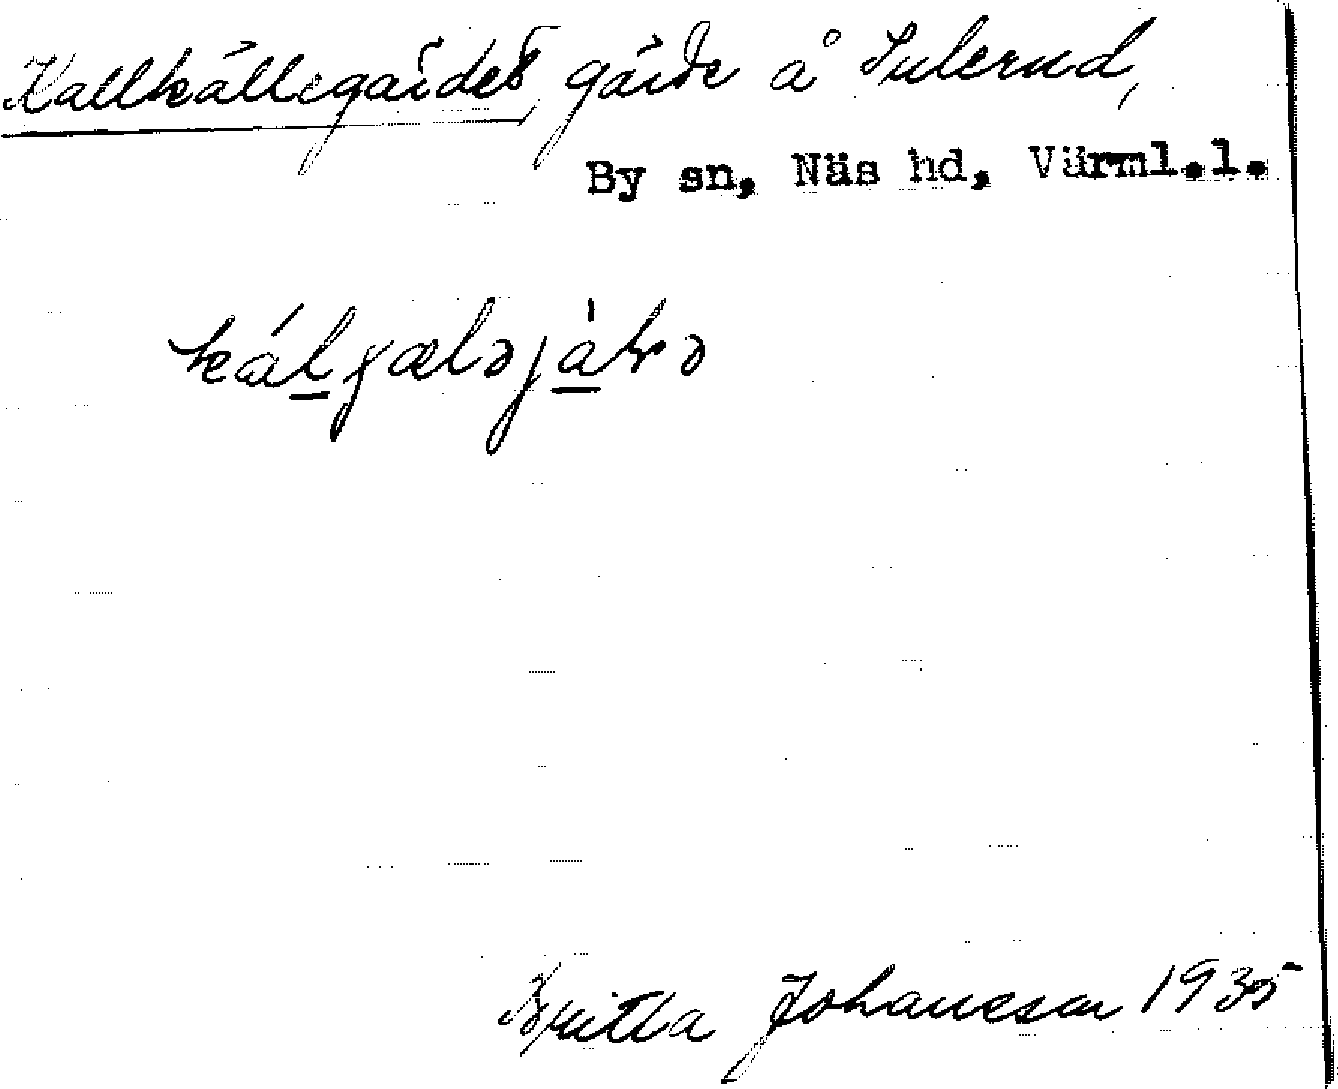 Kallkällegärdet, gärde å Sulerud,
By sn, Näs hd, Värml.l.
Britta Johansson 1935